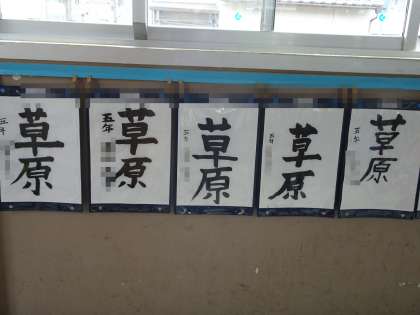 草原
五年
草原
五年
草原
五年
草原
五年
草原
五年